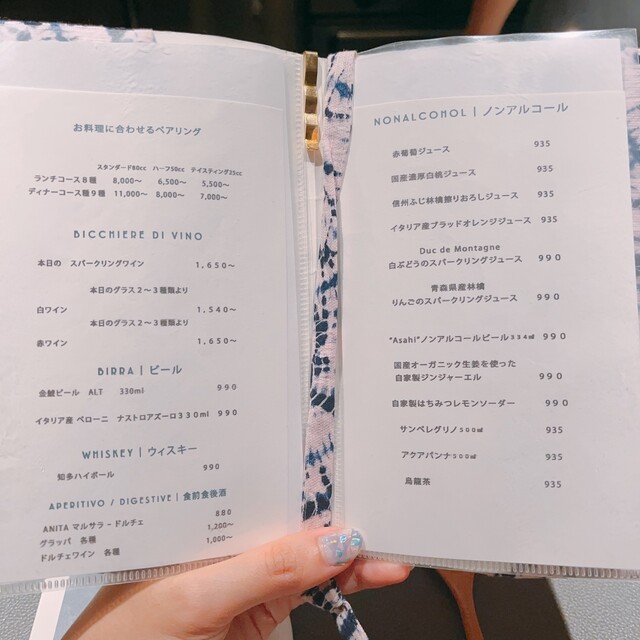 お料理に合わせるペアリング
スタンダード80cc ハーフ50cc テイスティング25cc
ランチコース８種 8,000～ 6,500～ 5,500～
ディナーコース種９種 11,000～ 8,000～ 7,000～
BICCHIERE DI VINO
本日の スパークリングワイン 1,650～
本日のグラス２～３種類より
白ワイン 1,540～
本日のグラス２～３種類より
赤ワイン 1,650～
BIRRA | ビール
金鯱ビール ALT 330ml 990
イタリア産 ペローニ ナストロアズーロ３３０ml 990
WHISKEY | ウィスキー
知多ハイボール 990
APERITIVO / DIGESTIVE | 食前食後酒
ANITA マルサラ - ドルチェ 880
グラッパ 各種 1,200～
ドルチェワイン 各種 1,000～
NONALCOHOL | ノンアルコール
赤葡萄ジュース 935
国産濃厚白桃ジュース 935
信州ふじ林檎擦りおろしジュース 935
イタリア産ブラッドオレンジジュース 935
Duc de Montagne
白ぶどうのスパークリングジュース 990
青森県産林檎
りんごのスパークリングジュース 990
"Asahi"ノンアルコールビール３３４ml 990
国産オーガニック生姜を使った
自家製ジンジャーエル 990
自家製はちみつレモンソーダー 990
サンペレグリノ５００ml 935
アクアパンナ５００ml 935
烏龍茶 935